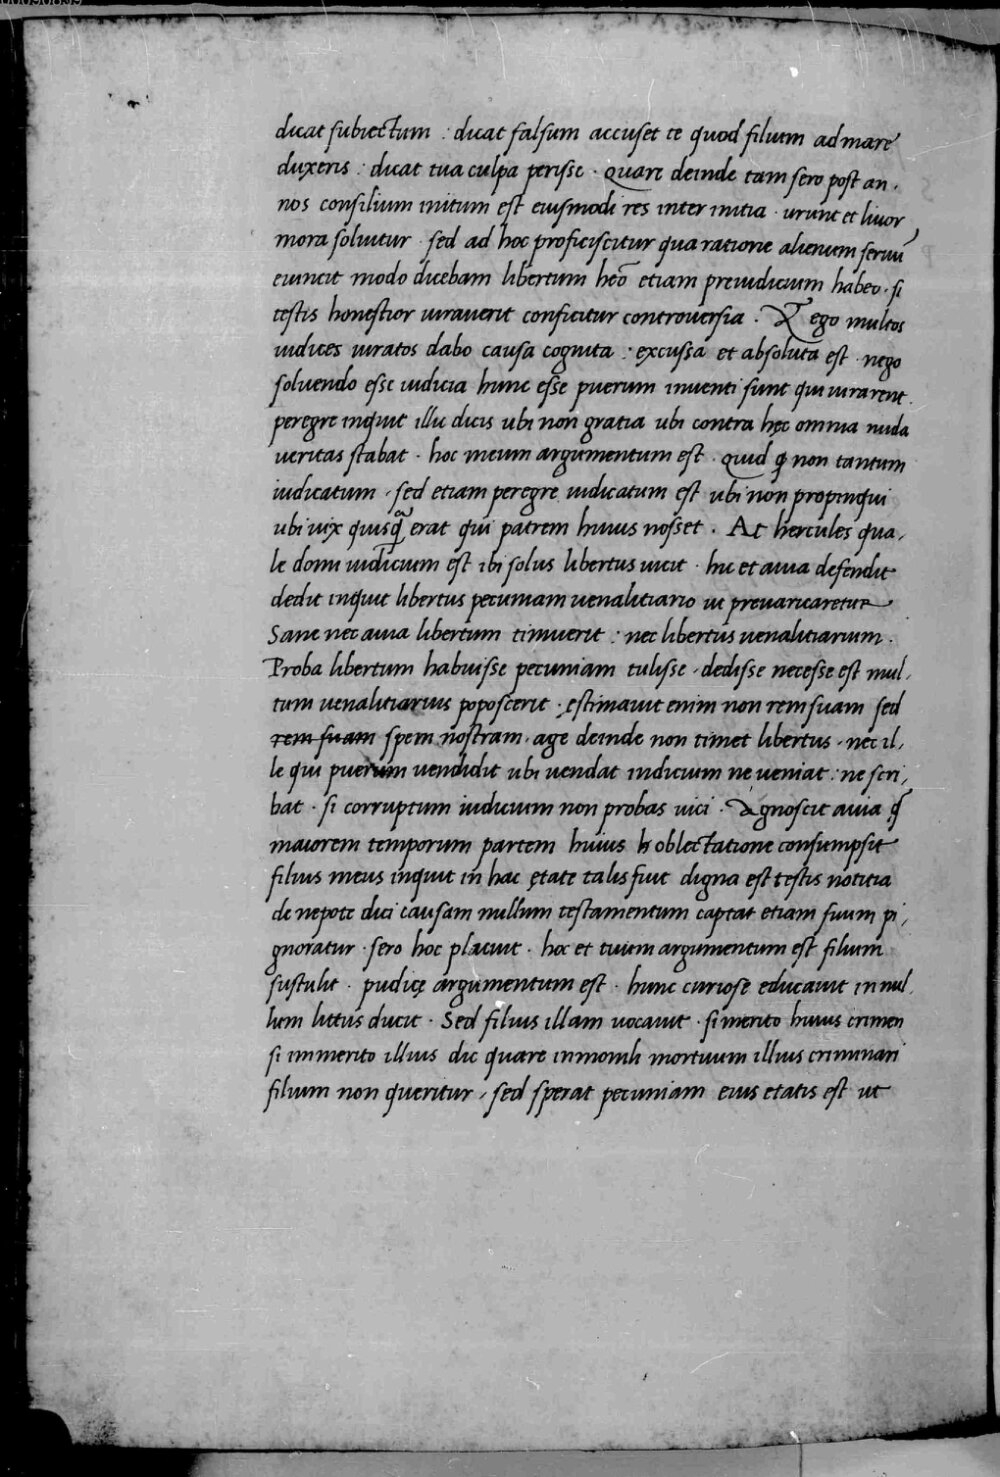 dicat subiectum : dicat falsum accuset te quod filium ad mare
duxeris : dicat tua culpa perisse . quare deinde tam sero post an,
nos consilium initum est eiusmodi res inter initia . urunt et liuor
mora soluitur . sed ad hoc proficiscitur qua ratione alienum seruū
euincit modo dicebam libertum heō etiam preiudicium habeo . si
testis honestior iurauerit conficitur controuersia . At ego multos
iudices iuratos dabo causa cognita : excussa et absoluta est . nego
soluendo esse iudicia hunc esse puerum inuenti sunt qui iurarent .
peregre inquit illic dicis ubi non gratia ubi contra hęc omnia nuda
ueritas stabat . hoc meum argumentum est . quid ꝙ non tantum
iudicatum , sed etiam peregre iudicatum est ubi non propinqui
ubi uix quisꝙ erat qui patrem huius nosset . At hercules qua,
le domi iudicium est ibi solus libertus uicit . hic et auia defendit
dedit inquit libertus pecuniam uenalitiario ut preuaricaretur
Sane nec auia libertum timuerit : nec libertus uenalitiarium .
Proba libertum habuisse pecuniam tulisse , dedisse necesse est mul,
tum uenalitiarius poposcerit . ęstimauit enim non rem suam sed
rem suam spem nostram . age deinde non timet libertus . nec il,
le qui puerum uendidit ubi uendat indicium ne ueniat : ne scri,
bat . si corruptum iudicium non probas uici . Agnoscit auia ꝙ
maiorem temporum partem huius h oblectatione consumpsit
filius meus inquit in hac ętate talis fuit digna est testis notitia
de nepote dici causam nullum testamentum captat etiam suum pi,
gnoratur . sero hoc placuit . hoc et tuum argumentum est filium
sustulit . pudicę argumentum est . hunc curiose educauit in nul,
lum littus ducit . Sed filius illam uocauit . si merito huius crimen
si immerito illius dic quare in momli mortuum illius criminari
filium non queritur , sed sperat pecuniam eius etatis est ut